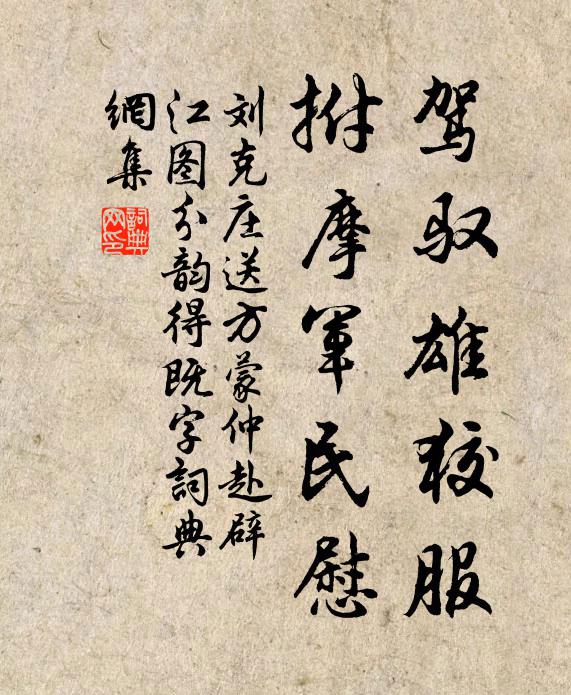 驾驭雄狡服
拊摩军民慰
刘克庄送方蒙仲赴辟
江图分韵得既字詞典
網集
詞典
网印